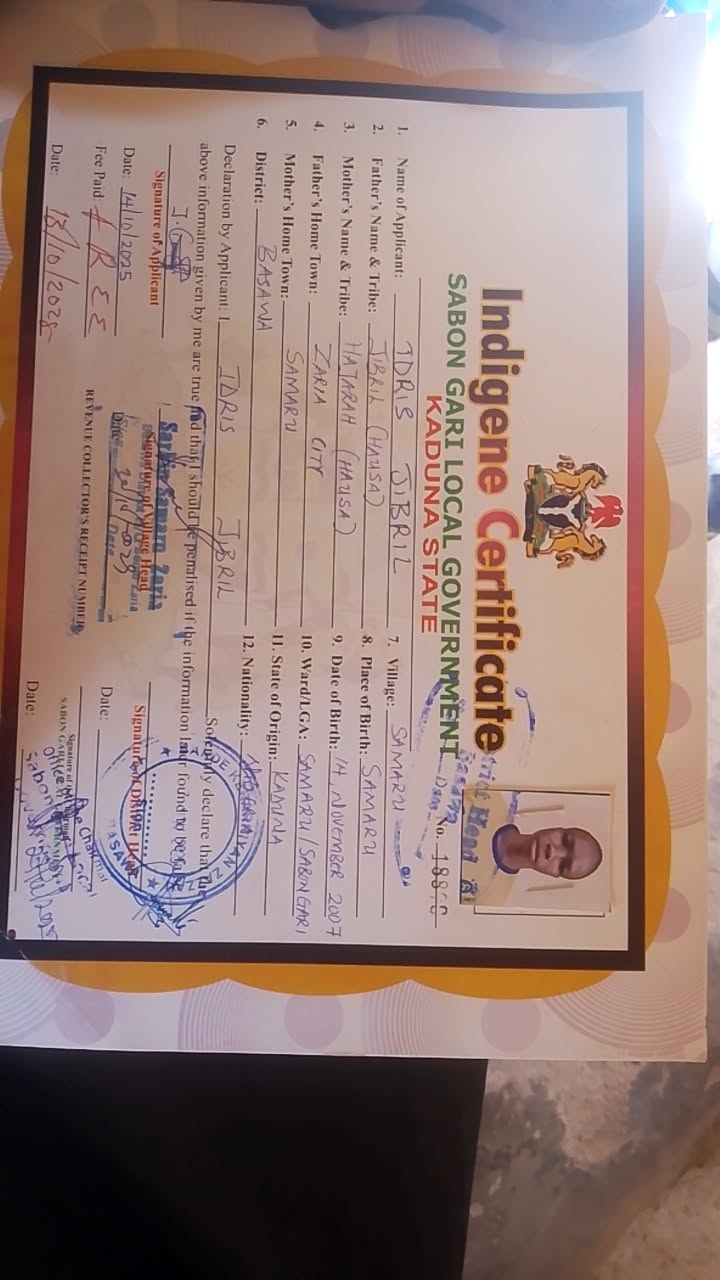 Indigene Certificate
SABON GARI LOCAL GOVERNMENT
KADUNA STATE
No.
1. Name of Applicant: IDRIS JIBRIL
2. Father's Name & Tribe: JIBRIL (HAUSA)
3. Mother's Name & Tribe: HAJARAH (HAUSA)
4. Father's Home Town: ZARIA CITY
5. Mother's Home Town: SAMARU
6. District: BASAWA
7. Village: SAMARU
8. Place of Birth: SAMARU
9. Date of Birth: 14, NOVEMBER 2007
10. Ward/LGA: SAMARU/SABON GARI
11. State of Origin: KADUNA
12. Nationality:
Declaration by Applicant: I IDRIS JIBRIL Solemnly declare that the
above information given by me are true and that I should be penalised if the information later found to be false
Signature of Applicant
Date: 14/10/2025
Sarkin Samaru Zaria
Signature of Village Head
Date:
Signature of District Head
Date:
Fee Paid: FREE
Date:
REVENUE COLLECTOR'S RECEIPT NUMBER
SABON GARI
Date: